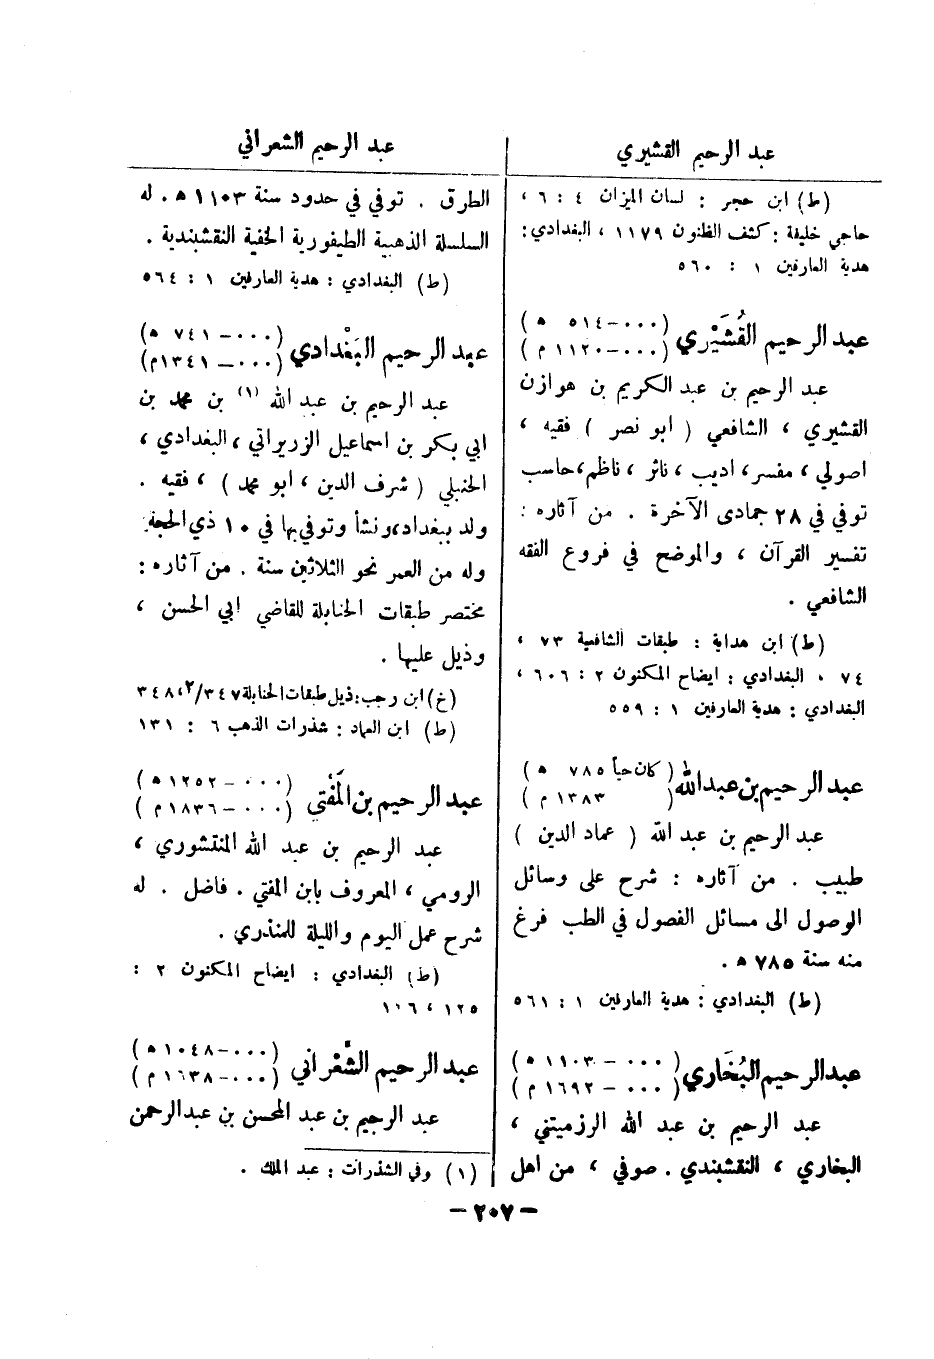 عبد الرحيم القشيري
(ط) ابن حجر : لسان الميزان ٤ : ٦ ،
حاجي خليفة : كشف الظنون ١١٧٩ ، البغدادي :
هدية العارفين ١ : ٥٦٠
عبد الرحيم القُشَيْري (٠٠٠ - ٥١٤ هـ)
(٠٠٠ - ١١٢٠ م)
عبد الرحيم بن عبد الكريم بن هوازن
القشيري ، الشافعي ( ابو نصر ) فقيه ،
اصولي ، مفسر، اديب ، ناثر ، ناظم، حاسب
توفي في ٢٨ جمادى الآخرة . من آثاره :
تفسير القرآن ، والموضح في فروع الفقه
الشافعي .
(ط) ابن هداية : طبقات الشافعية ٧٣ ،
٧٤ ، البغدادي : ايضاح المكنون ٢ : ٦٠٦ ،
البغدادي : هدية العارفين ١ : ٥٥٩
عبد الرحيم بن عبدالله ( كان حياً ٧٨٥ هـ )
( ١٣٨٣ م )
عبد الرحيم بن عبد الله ( عماد الدين )
طبيب . من آثاره : شرح على وسائل
الوصول الى مسائل الفصول في الطب فرغ
منه سنة ٧٨٥ هـ .
(ط) البغدادي : هدية العارفين ١ : ٥٦١
عبد الرحيم البُخَاري (٠٠٠ - ١١٠٣ هـ)
(٠٠٠ - ١٦٩٢ م)
عبد الرحيم بن عبد الله الرزميتني ،
البخاري ، النقشبندي . صوفي ، من اهل
عبد الرحيم الشعراني
الطرق . توفي في حدود سنة ١١٠٣ هـ . له
السلسلة الذهبية الطيفورية الخفية النقشبندية .
(ط) البغدادي : هدية العارفين ١ : ٥٦٤
عبد الرحيم البَغْدادي (٠٠٠ - ٧٤١ هـ)
(٠٠٠ - ١٣٤١ م)
عبد الرحيم بن عبد الله (١) بن محمد بن
ابي بكر بن اسماعيل الزريراتي ، البغدادي ،
الحنبلي ( شرف الدين ، ابو محمد ) ، فقيه .
ولد ببغداد، ونشأ وتوفي بها في ١٠ ذي الحجة
وله من العمر نحو الثلاثين سنة . من آثاره :
مختصر طبقات الحنابلة للقاضي ابي الحسن ،
وذيل عليها .
(خ) ابن رجب : ذيل طبقات الحنابلة ٣٤٧/٢، ٣٤٨
(ط) ابن العماد : شذرات الذهب ٦ : ١٣١
عبد الرحيم بن المُفْتي (٠٠٠ - ١٢٥٢ هـ)
(٠٠٠ - ١٨٣٦ م)
عبد الرحيم بن عبد الله المنتشوري ،
الرومي ، المعروف بابن المفتي . فاضل . له
شرح عمل اليوم والليلة للمنذري .
(ط) البغدادي : ايضاح المكنون ٢ :
١٢٥ ، ١٠٦
عبد الرحيم الشَّعْراني (٠٠٠ - ١٠٤٨ هـ)
(٠٠٠ - ١٦٣٨ م)
عبد الرحيم بن عبد المحسن بن عبد الرحمن
(١) وفي الشذرات : عبد الملك .
- ٢٠٧ -